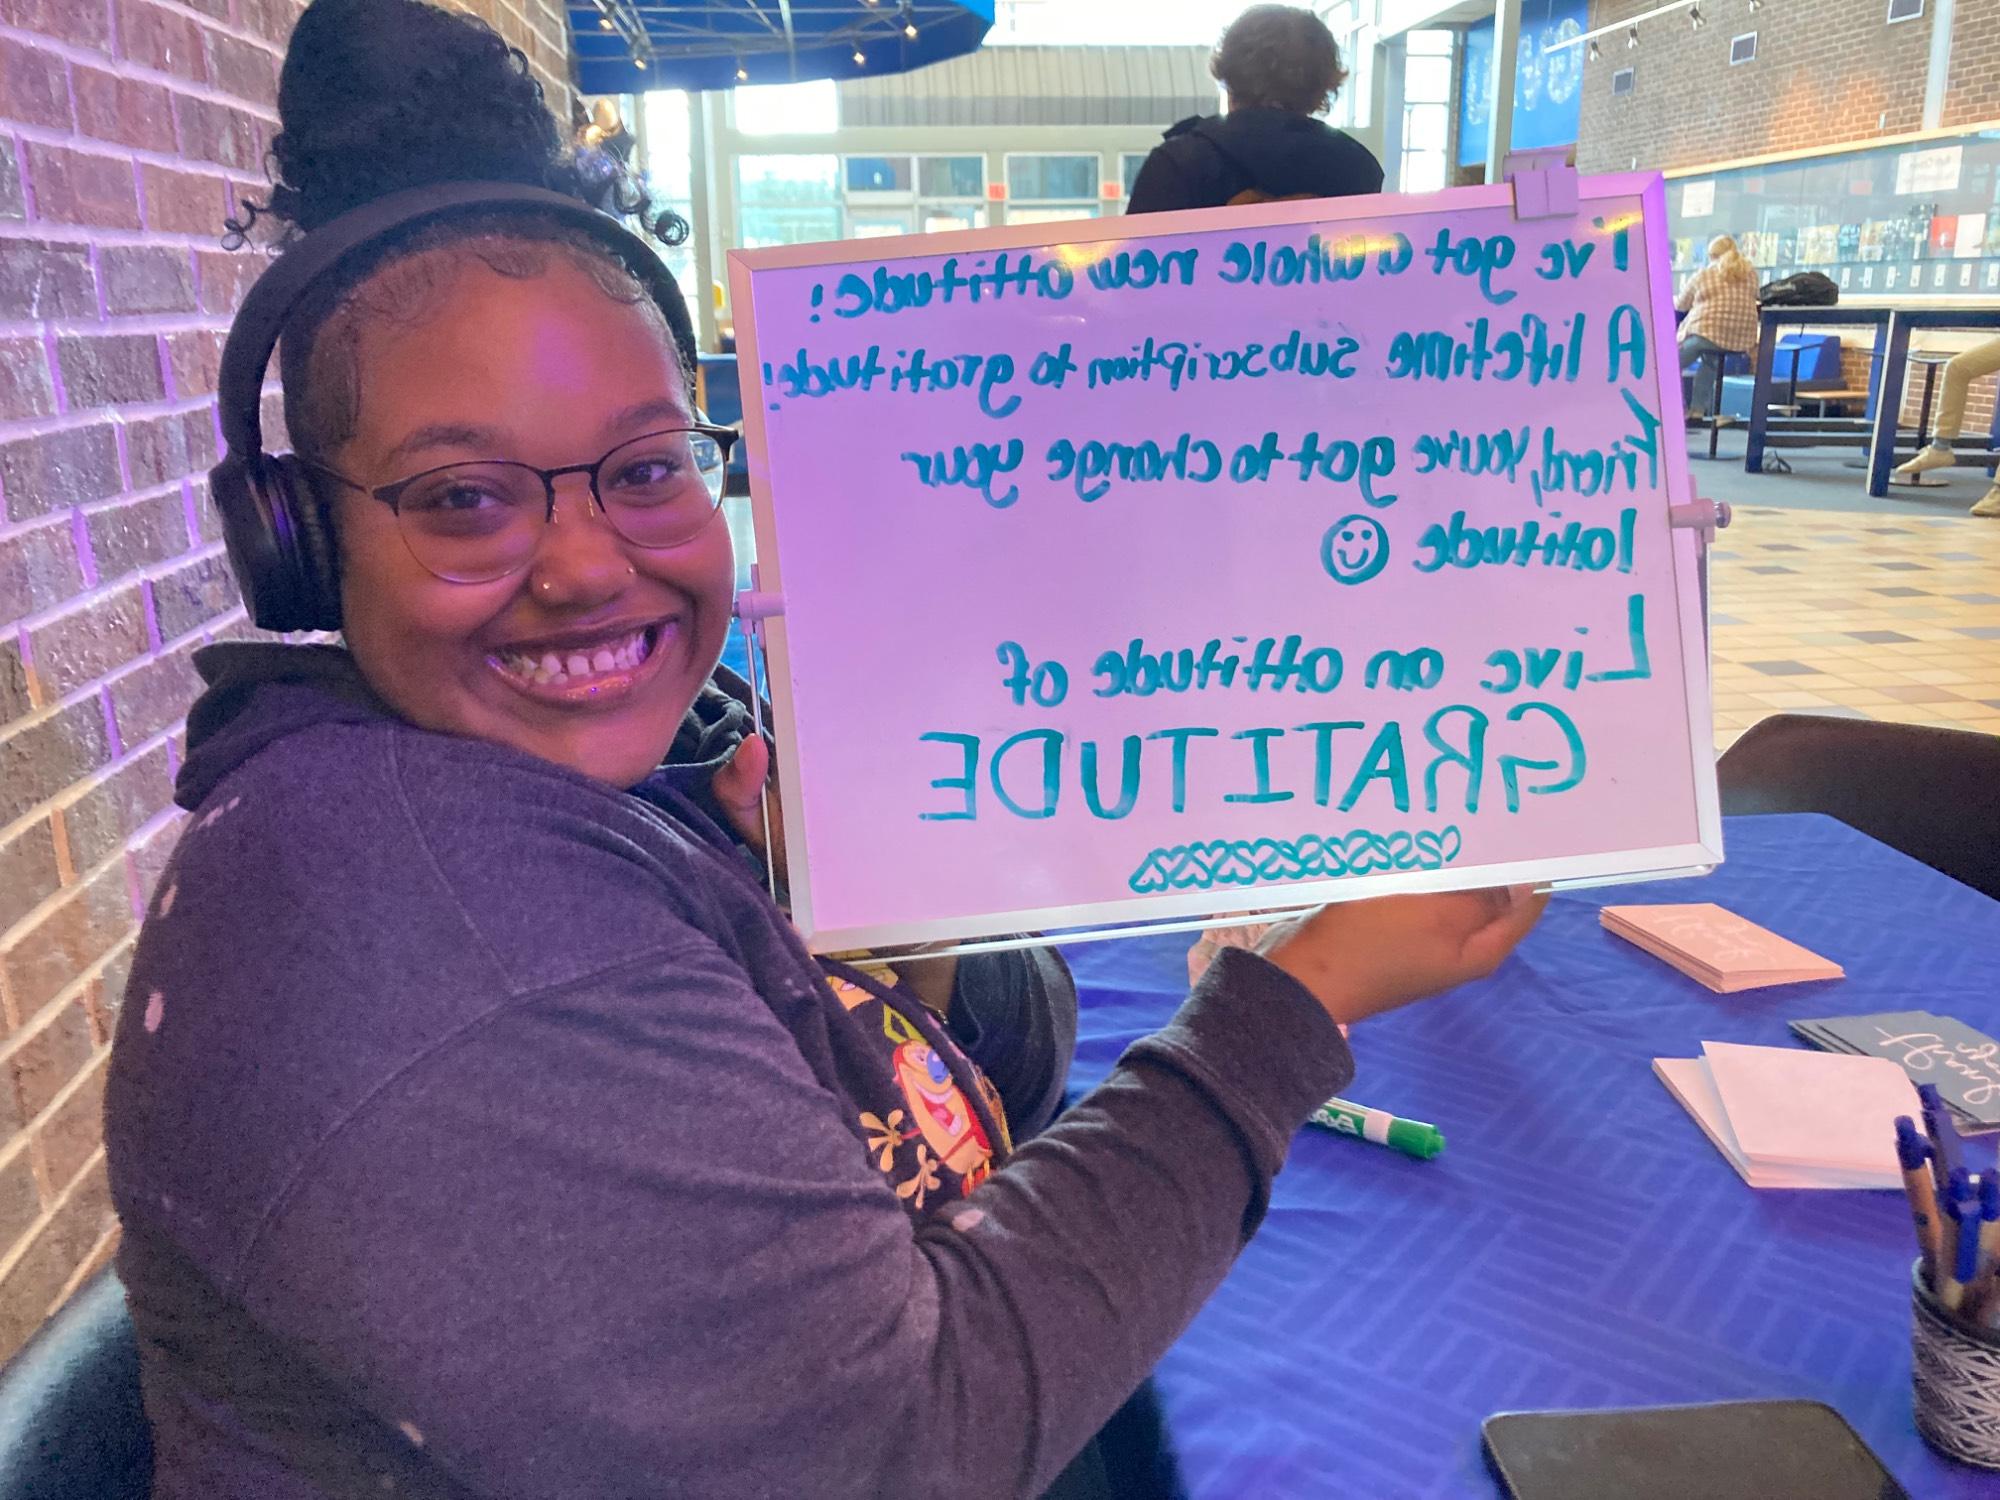 I've got a whole new attitude!
A lifetime subscription to gratitude!
Friend, you've got to change your
latitude
Live an attitude of
GRATITUDE